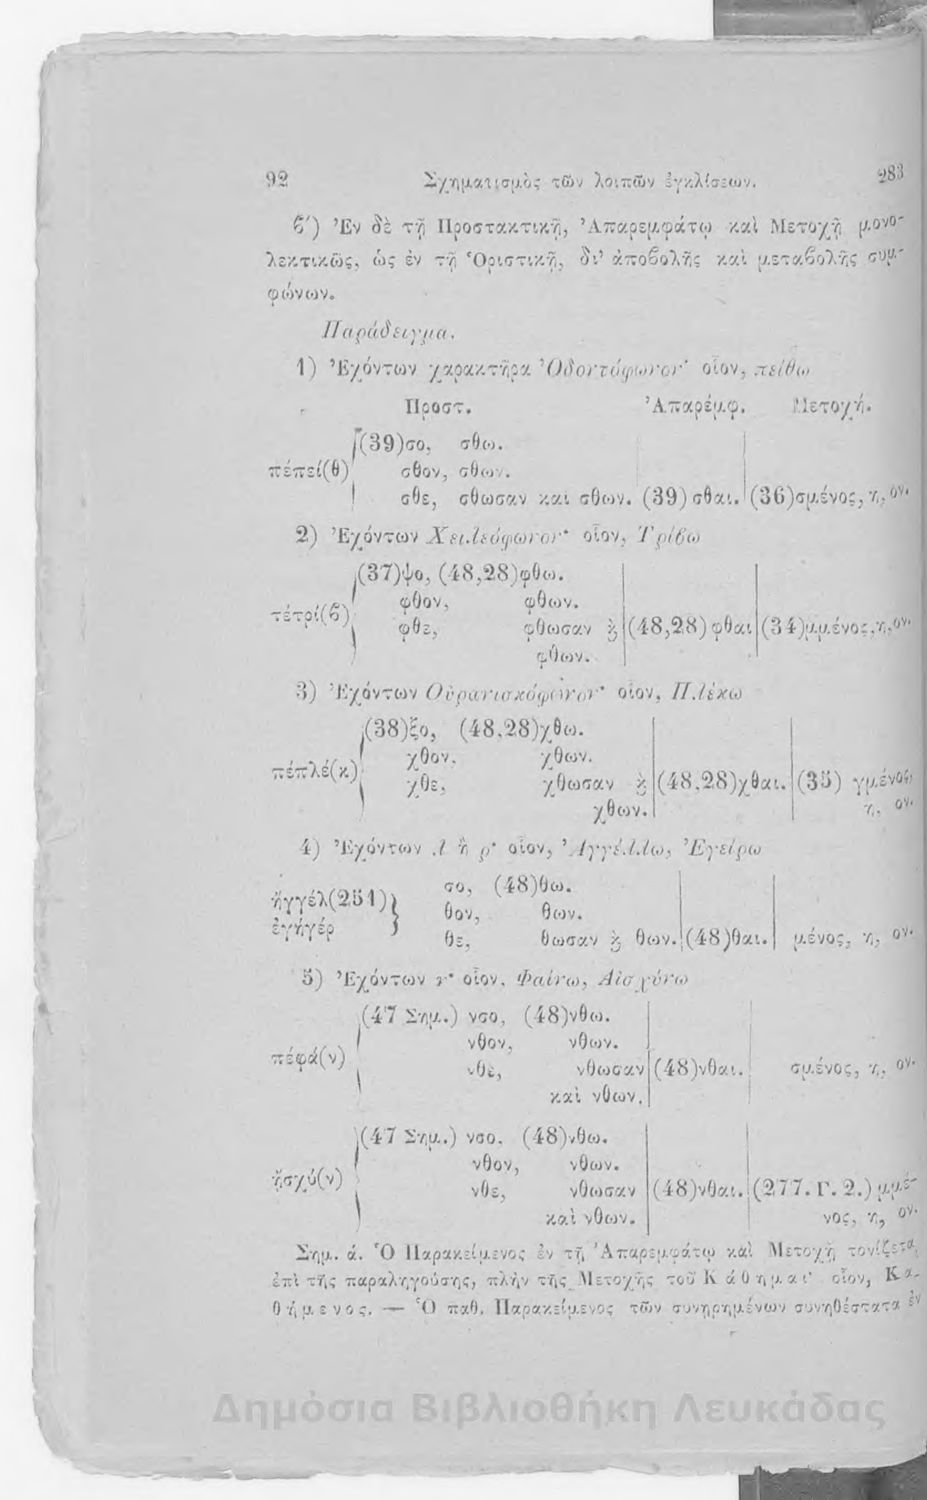 92 Σχηματισμὸς τῶν λοιπῶν ἐγκλίσεων. 283
ϐ′) Ἐν δὲ τῇ Προστακτικῇ, Ἀπαρεμφάτῳ καὶ Μετοχῇ μονο-
λεκτικῶς, ὡς ἐν τῇ Ὁριστικῇ, δι' ἀποϐολῆς καὶ μεταϐολῆς συμ-
φώνων.
Παράδειγμα.
1) Ἐχόντων χαρακτῆρα Ὀδοντόφωνον· οἷον, πείθω
Προστ. Ἀπαρέμφ. Μετοχή.
(39)σο, σθω.
πέπεί(θ) σθον, σθων.
σθε, σθωσαν καὶ σθων. (39)σθαι. (36)σμένος, η, ον.
2) Ἐχόντων Χειλεόφωνον· οἷον, Τρίϐω
(37)ψο, (48,28)φθω.
τέτρί(ϐ) φθον, φθων.
φθε, φθωσαν ϗ (48,28)φθαι (34)μμένος, η, ον.
φθων.
3) Ἐχόντων Οὐρανισκόφωνον· οἷον, Πλέκω
(38)ξο, (48,28)χθω.
πέπλέ(κ) χθον, χθων.
χθε, χθωσαν ϗ (48,28)χθαι. (35) γμένος,
χθων. η, ον.
4) Ἐχόντων λ ἢ ρ· οἷον, Ἀγγέλλω, Ἐγείρω
ἠγγέλ(251) σο, (48)θω.
ἐγήγέρ θον, θων.
θε, θωσαν ϗ θων. (48)θαι. μένος, η, ον.
5) Ἐχόντων ν· οἷον, Φαίνω, Αἰσχύνω
(47 Σημ.) νσο, (48)νθω.
πέφά(ν) νθον, νθων.
νθε, νθωσαν (48)νθαι. σμένος, η, ον.
καὶ νθων.
(47 Σημ.) νσο, (48)νθω.
ᾐσχύ(ν) νθον, νθων.
νθε, νθωσαν (48)νθαι. (277. Γ. 2.) μμέ-
καὶ νθων. νος, η, ον.
Σημ. ά. Ὁ Παρακείμενος ἐν τῇ Ἀπαρεμφάτῳ καὶ Μετοχῇ τονίζεται
ἐπὶ τῆς παραληγούσης, πλὴν τῆς Μετοχῆς τοῦ Κάθημαι· οἷον, Κα-
θήμενος. — Ὁ παθ. Παρακείμενος τῶν συνηρημένων συνηθέστατα ἐν
Δημόσια Βιβλιοθήκη Λευκάδας